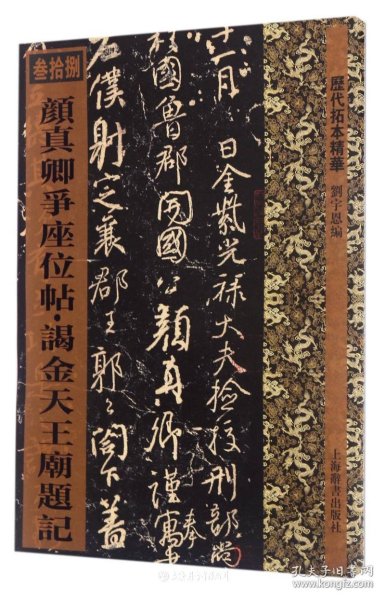 叁拾捌
顏真卿爭座位帖·謁金天王廟題記
歷代拓本精華
劉宇恩編
上海辭書出版社
十一月 日金紫光祿大夫檢校刑部尚
國魯郡開國公顏真卿謹奉寓書
僕射定襄郡王郭公閤下蓋
孔夫子旧书网
www.kongfz.com